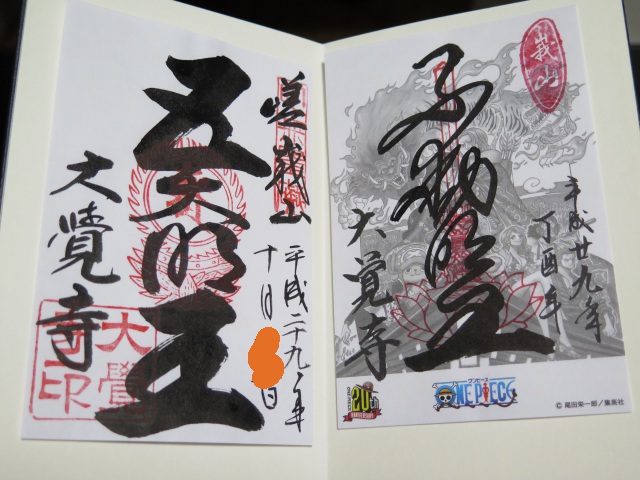 嵯峨山
五大明王
大覺寺
平成二十九年
十月
日
大覺寺印
峩山
不動明王
大覚寺
平成廿九年
丁酉年
ONE PIECE
20th
ワンピース
ONE PIECE
© 尾田栄一郎／集英社